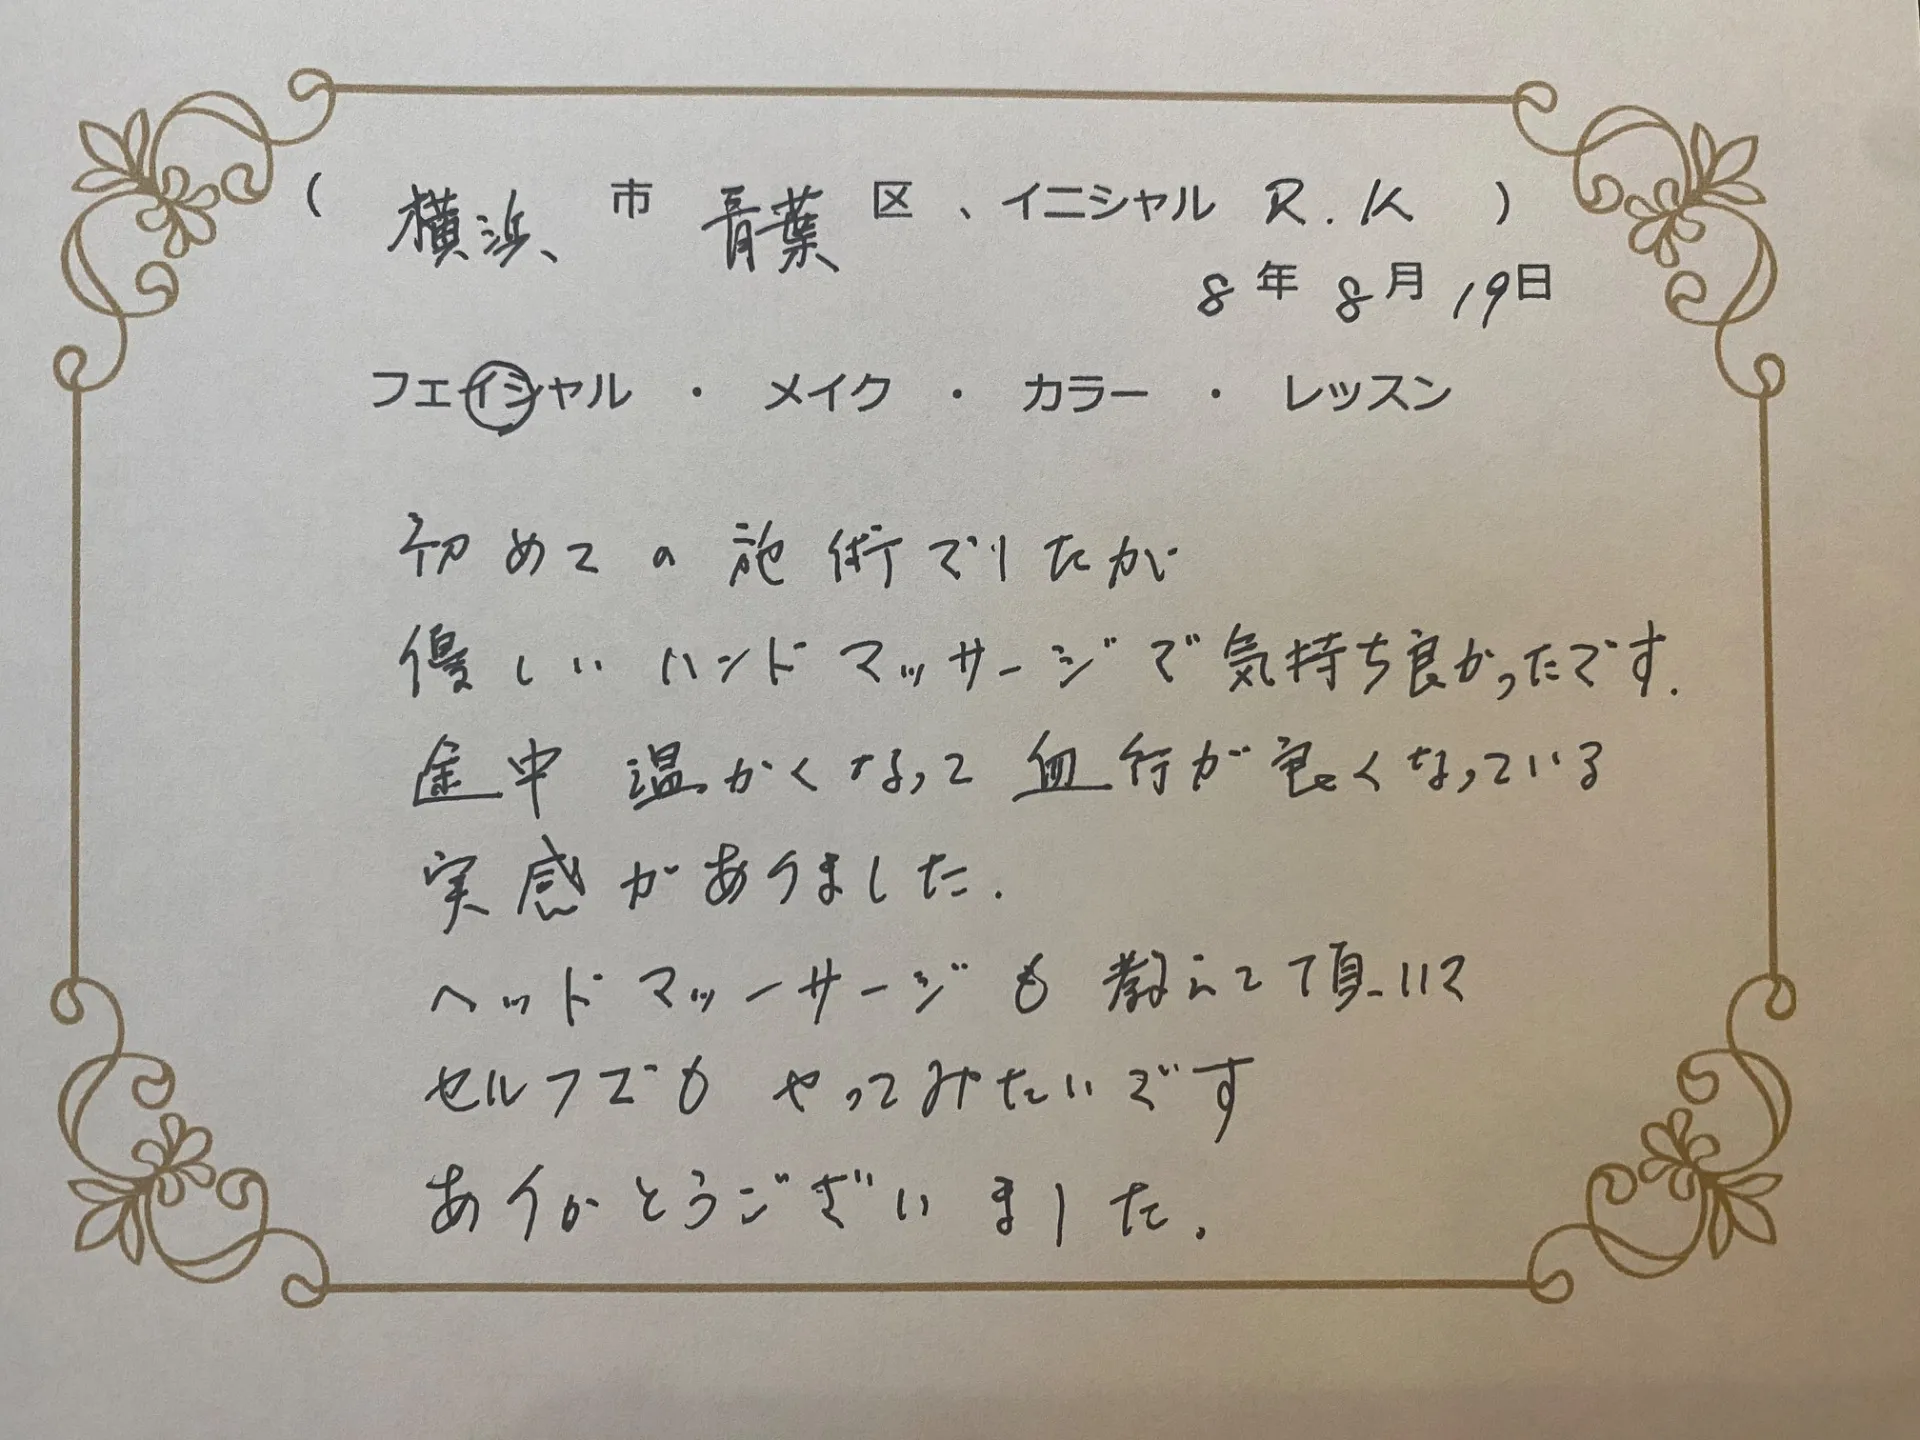 ( 横浜 市 青葉 区 、イニシャル R.K )
8年 8月 19日
フェイシャル ・ メイク ・ カラー ・ レッスン
初めての施術でしたが
優しいハンドマッサージで気持ち良かったです.
途中 温かくなって 血行が良くなっている
実感がありました.
ヘッドマッーサージも教えて頂いて
セルフでも やってみたいです
ありがとうございました.